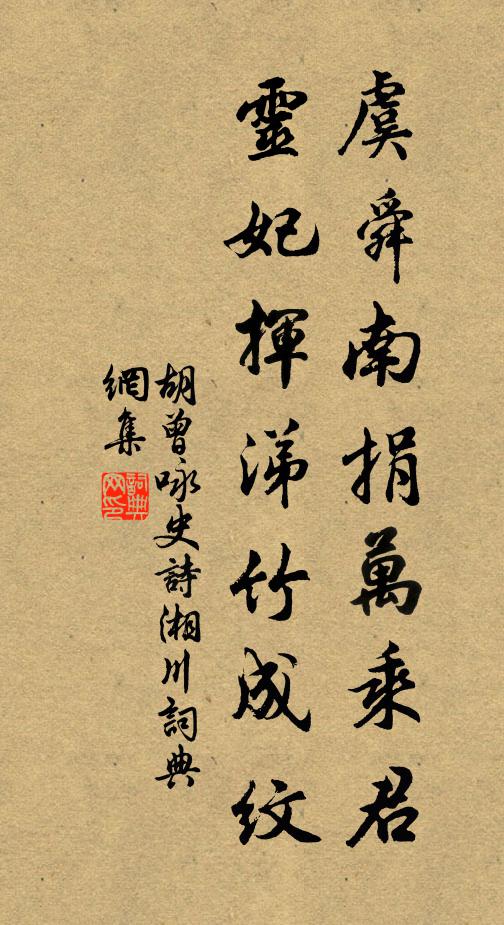 虞舜南捐萬乘君
靈妃揮涕竹成紋
胡曾咏史詩湘川詞典
網集
詞典
网印